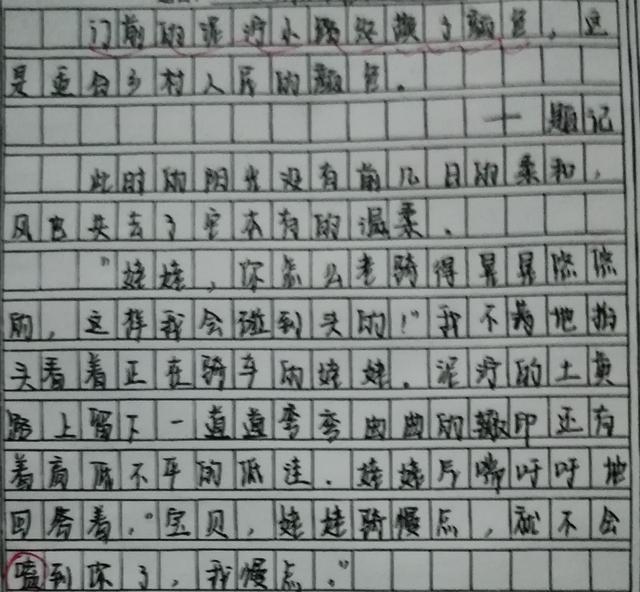 门前的泥泞小路终换了颜色，这
是适合乡村人民的颜色。
——题记
此时的阳光没有前几日的柔和，
风也失去了它本有的温柔。
"娃娃，你怎么老骑得晃晃悠悠
的，这样我会碰到头的！"我不满地抬
头看着正在骑车的娃娃。泥泞的土黄
路上留下一道道弯弯曲曲的辙印还有
着高低不平的低洼。娃娃气喘吁吁地
回答着，"宝贝，娃娃骑慢点，就不会
嗑到你了，我慢点。"